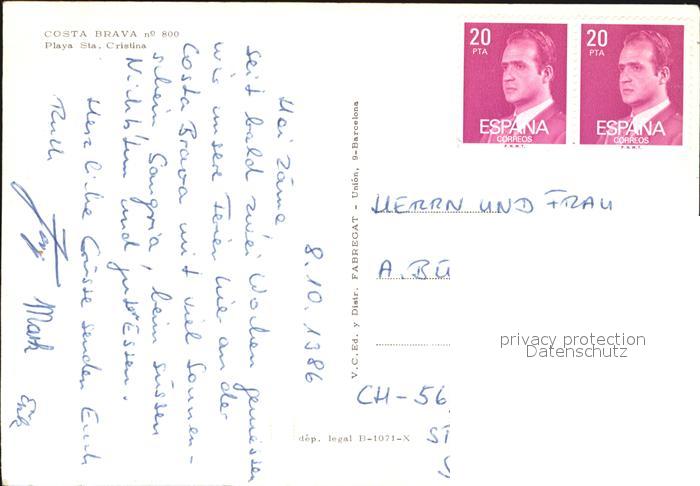 COSTA BRAVA nº 800
Playa Sta. Cristina
8.10.1986
Hoi Zäme
seit bald zwei Wochen geniessen
wir unsere Ferien hier an der
Costa Brava mit viel Sonnen-
schein, Sangria, beim süssen
Nichtstun und gutem Essen.
Herzliche Grüsse senden Euch
Ruth Mark Erik
V.C.Ed. y Distr. FABREGAT - Unión, 9-Barcelona
dép. legal B-1071-X
20
PTA
ESPAÑA
CORREOS
F.N.M.T.
20
PTA
ESPAÑA
CORREOS
F.N.M.T.
HERRN UND FRAU
A. BÜ
CH-56
ST
privacy protection
Datenschutz